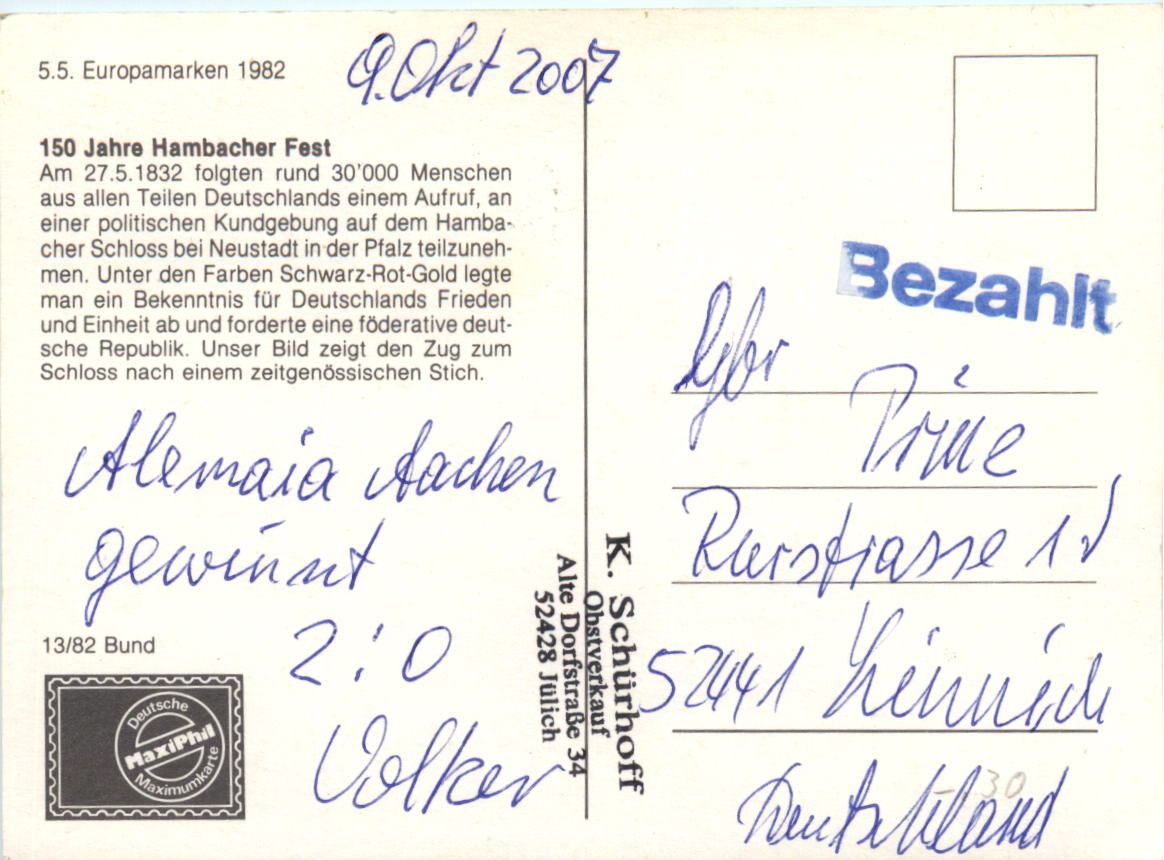 5.5. Europamarken 1982
9. Okt 2007
150 Jahre Hambacher Fest
Am 27.5.1832 folgten rund 30'000 Menschen
aus allen Teilen Deutschlands einem Aufruf, an
einer politischen Kundgebung auf dem Hamba-
cher Schloss bei Neustadt in der Pfalz teilzuneh-
men. Unter den Farben Schwarz-Rot-Gold legte
man ein Bekenntnis für Deutschlands Frieden
und Einheit ab und forderte eine föderative deut-
sche Republik. Unser Bild zeigt den Zug zum
Schloss nach einem zeitgenössischen Stich.
Alemaia Aachen
gewinnt
2:0
Volker
13/82 Bund
Deutsche
MaxiPhil
Maximumkarte
K. Schürhoff
Obstverkauf
Alte Dorfstraße 34
52428 Jülich
Bezahlt
Rurstrasse
52441 Linnich
Deutschland
30